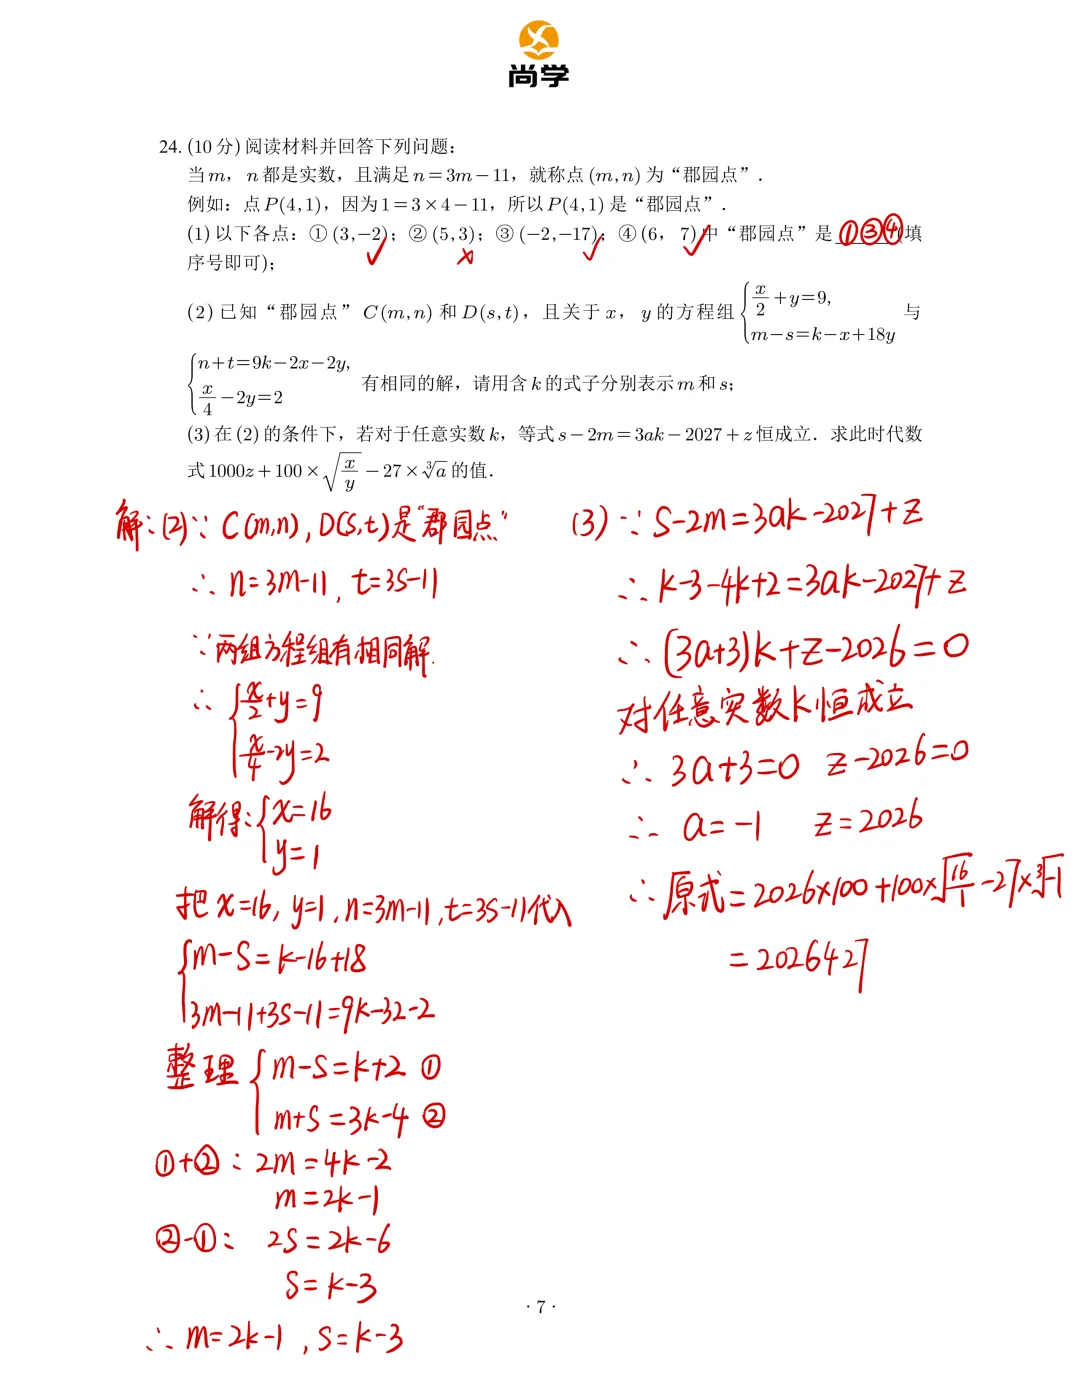 尚学
24. (10分) 阅读材料并回答下列问题：
当m，n都是实数，且满足n=3m-11，就称点(m,n)为“郡园点”．
例如：点P(4,1)，因为1=3×4-11，所以P(4,1)是“郡园点”．
(1)以下各点：①(3,-2)；②(5,3)；③(-2,-17)；④(6，7)中“郡园点”是 ①③④ (填
√ × √ √
序号即可)；
(2)已知“郡园点”C(m,n)和D(s,t)，且关于x，y的方程组{x/2+y=9, m-s=k-x+18y 与
{n+t=9k-2x-2y, x/4-2y=2 有相同的解，请用含k的式子分别表示m和s；
(3)在(2)的条件下，若对于任意实数k，等式s-2m=3ak-2027+z恒成立．求此时代数
式1000z+100×√(x/y)-27×∛a的值．
解：(2)∵C(m,n),D(s,t)是“郡园点”
∴n=3m-11,t=3s-11
∵两组方程组有相同解.
∴{x/2+y=9
x/4-2y=2
解得:{x=16
y=1
把x=16,y=1,n=3m-11,t=3s-11代入
{m-s=k-16+18
3m-11+3s-11=9k-32-2
整理{m-s=k+2 ①
m+s=3k-4 ②
①+②：2m=4k-2
m=2k-1
②-①：2s=2k-6
s=k-3
∴m=2k-1,s=k-3
(3)∵s-2m=3ak-2027+z
∴k-3-4k+2=3ak-2027+z
∴(3a+3)k+z-2026=0
对任意实数k恒成立
∴3a+3=0 z-2026=0
∴a=-1 z=2026
∴原式=2026×100+100×√(16/1)-27×∛-1
=2026427
·7·